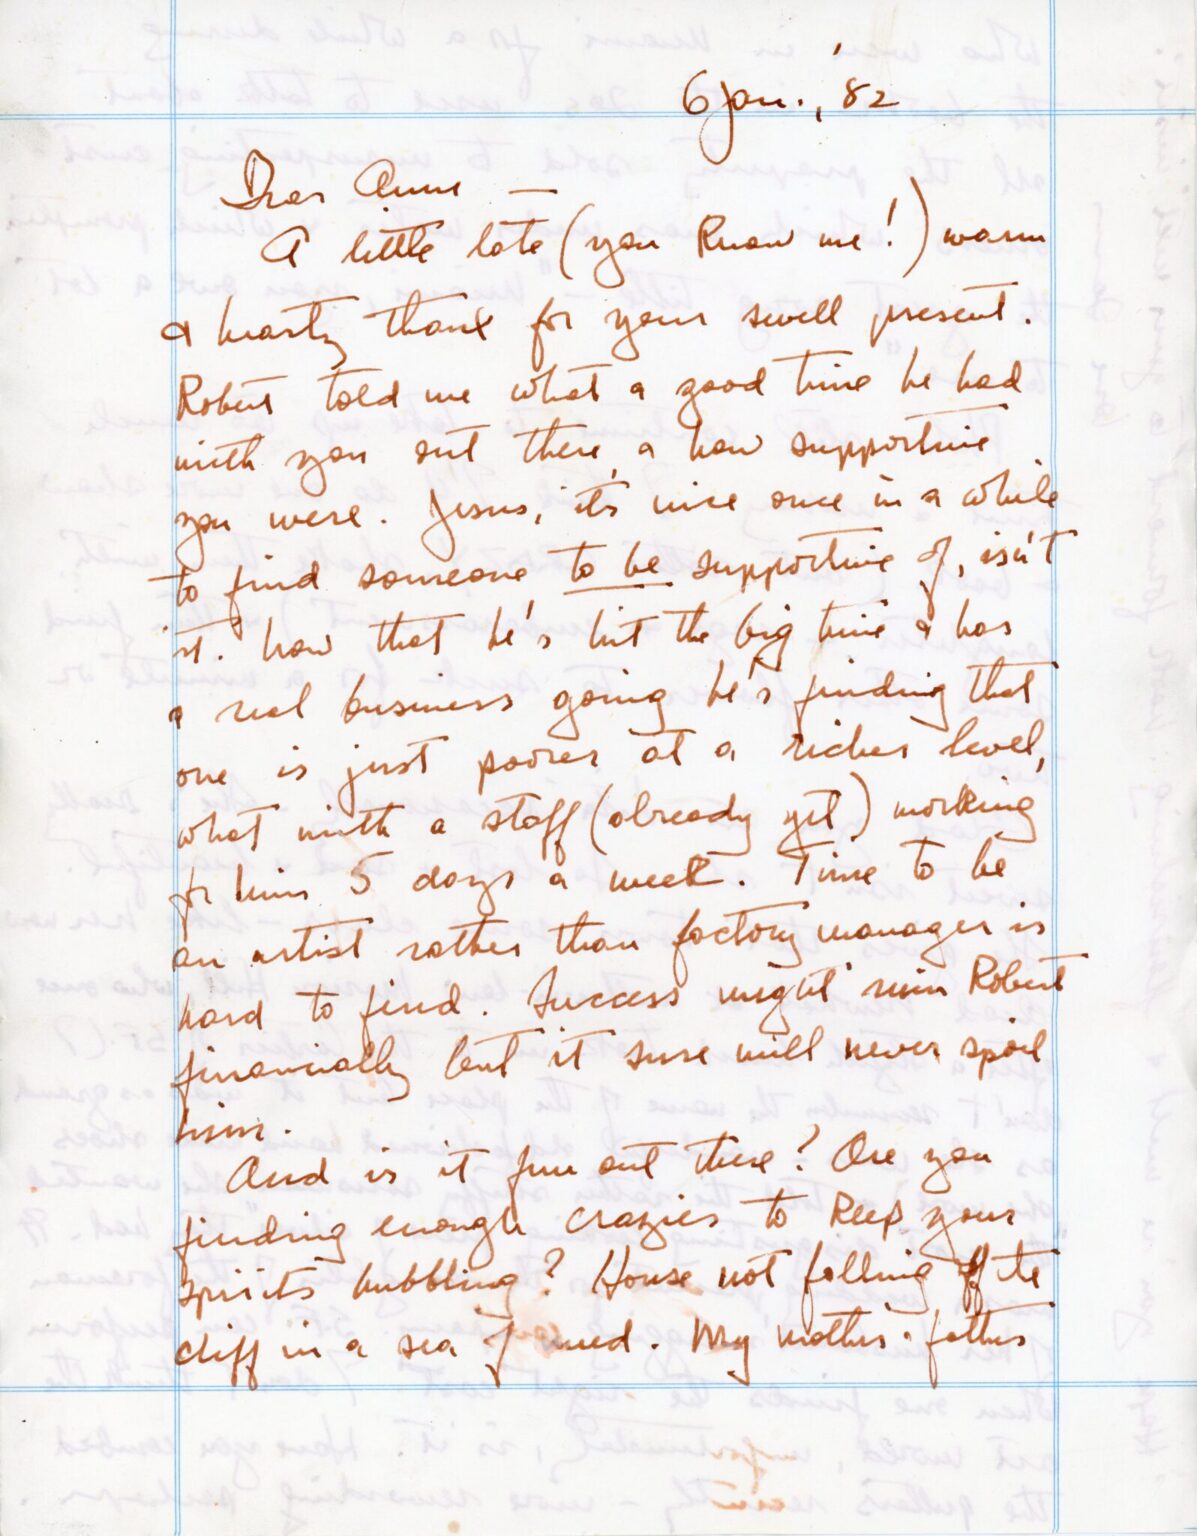 6 Jan., '82
Dear Anne —
A little late (you know me!) warm
& hearty thanx for your swell present.
Robert told me what a good time he had
with you out there, & how supportive
you were. Jesus, it's nice once in a while
to find someone to be supportive of, isn't
it. Now that he's hit the big time & has
a real business going he's finding that
one is just poorer at a richer level,
what with a staff (already yet) working
for him 5 days a week. Time to be
an artist rather than factory manager is
hard to find. Success might ruin Robert
financially but it sure will never spoil
him.
And is it fun out there? Are you
finding enough crazies to keep your
spirits bubbling? House not falling off the
cliff in a sea of mud. My mother & father